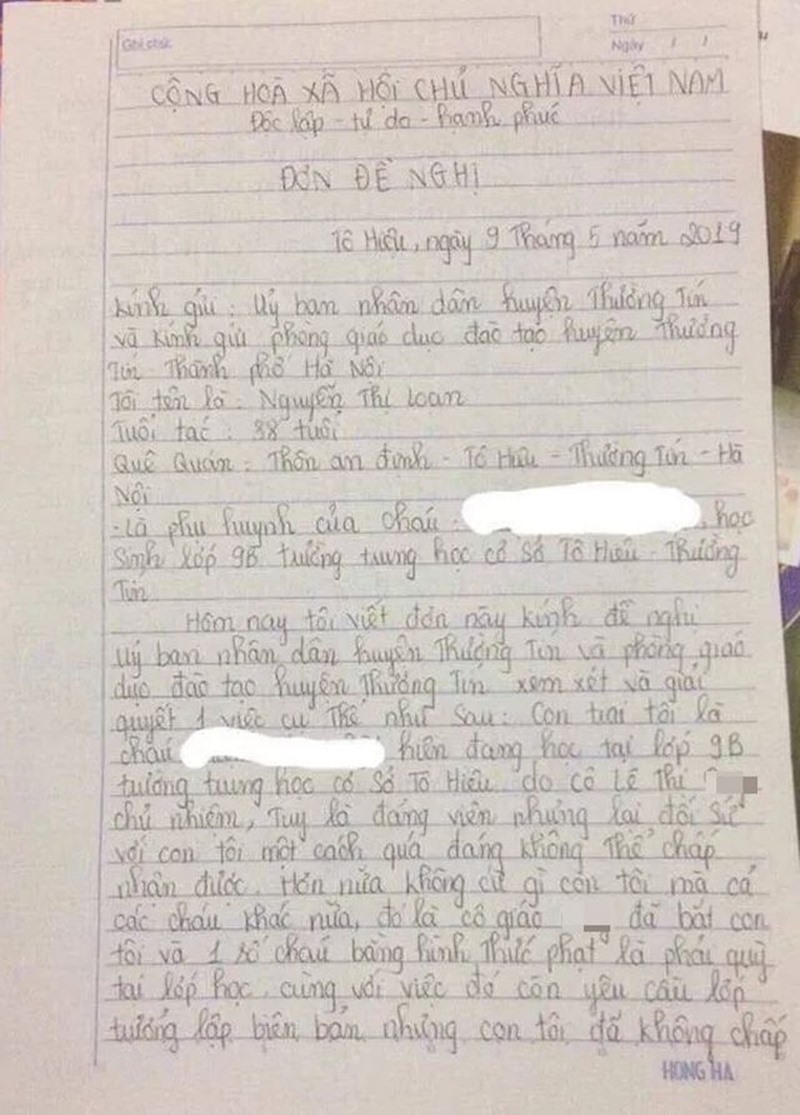 Ghi chú:
Thứ
Ngày / /
CỘNG HOÀ XÃ HỘI CHỦ NGHĨA VIỆT NAM
Độc lập - tự do - hạnh phúc
ĐƠN ĐỀ NGHỊ
Tô Hiệu, ngày 9 Tháng 5 năm 2019
Kính gửi : Uỷ ban nhân dân huyện Thường Tín
và kính gửi phòng giáo dục đào tạo huyện Thường
Tín Thành phố Hà Nội
Tôi tên là : Nguyễn Thị Loan
Tuổi tác : 38 tuổi
Quê Quán : Thôn an định - Tô Hiệu - Thường Tín - Hà
Nội
- Là phụ huynh của cháu : , học
Sinh lớp 9B trường trung học cơ Sở Tô Hiệu - Thường
Tín
Hôm nay tôi viết đơn này kính đề nghị
Uỷ ban nhân dân huyện Thường Tín và phòng giáo
dục đào tạo huyện Thường Tín xem xét và giải
quyết 1 việc cụ Thể như Sau : Con trai tôi là
cháu hiện đang học tại lớp 9B
trường trung học cơ Sở Tô Hiệu do cô Lê Thị
chủ nhiệm, Tuy là đảng viên nhưng lại đối sử
với con tôi một cách quá đáng không Thể chấp
nhận được. Hơn nữa không cứ gì con tôi mà cả
các cháu khác nữa, đó là cô giáo đã bắt con
tôi và 1 số cháu bằng hình Thức phạt là phải quỳ
tại lớp học. cùng với việc đó còn yêu cầu lớp
trưởng lập biên bản nhưng con tôi đã không chấp
HONG HA